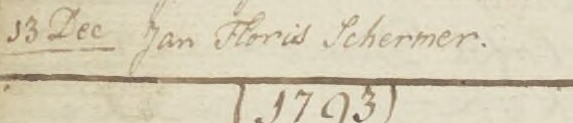 13 Dec Jan Floris Schermer.
(1793)